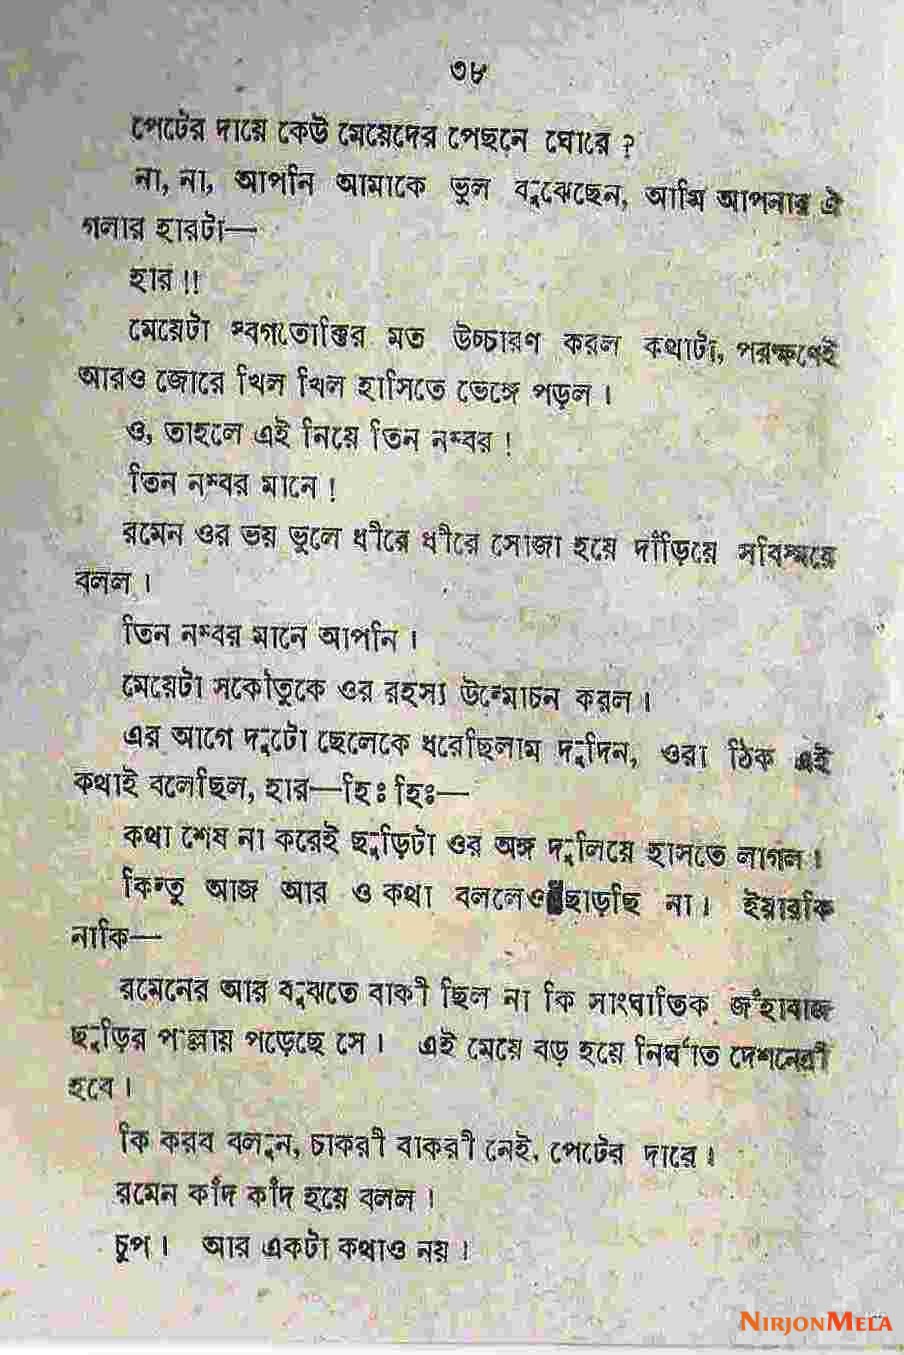 ৩৮
পেটের দায়ে কেউ মেয়েদের পেছনে ঘোরে ?
না, না, আপনি আমাকে ভুল বুঝেছেন, আমি আপনার ঐ
গলার হারটা—
হার !!
মেয়েটা স্বগতোক্তির মত উচ্চারণ করল কথাটা, পরক্ষণেই
আরও জোরে খিল খিল হাসিতে ভেঙ্গে পড়ল ।
ও, তাহলে এই নিয়ে তিন নম্বর !
তিন নম্বর মানে !
রমেন ওর ভয় ভুলে ধীরে ধীরে সোজা হয়ে দাঁড়িয়ে সবিস্ময়ে
বলল ।
তিন নম্বর মানে আপনি ।
মেয়েটা সকৌতুকে ওর রহস্য উন্মোচন করল ।
এর আগে দুটো ছেলেকে ধরেছিলাম দুদিন, ওরা ঠিক এই
কথাই বলেছিল, হার—হিঃ হিঃ—
কথা শেষ না করেই ছুড়িটা ওর অঙ্গ দুলিয়ে হাসতে লাগল ।
কিন্তু আজ আর ও কথা বললেও ছাড়ছি না । ইয়ারকি
নাকি—
রমেনের আর বুঝতে বাকী ছিল না কি সাংঘাতিক জাঁহাবাজ
ছুড়ির পাল্লায় পড়েছে সে । এই মেয়ে বড় হয়ে নির্ঘাত দেশনেত্রী
হবে ।
কি করব বলুন, চাকরী বাকরী নেই, পেটের দারে ।
রমেন কাঁদ কাঁদ হয়ে বলল ।
চুপ । আর একটা কথাও নয় ।
NIRJONMELA